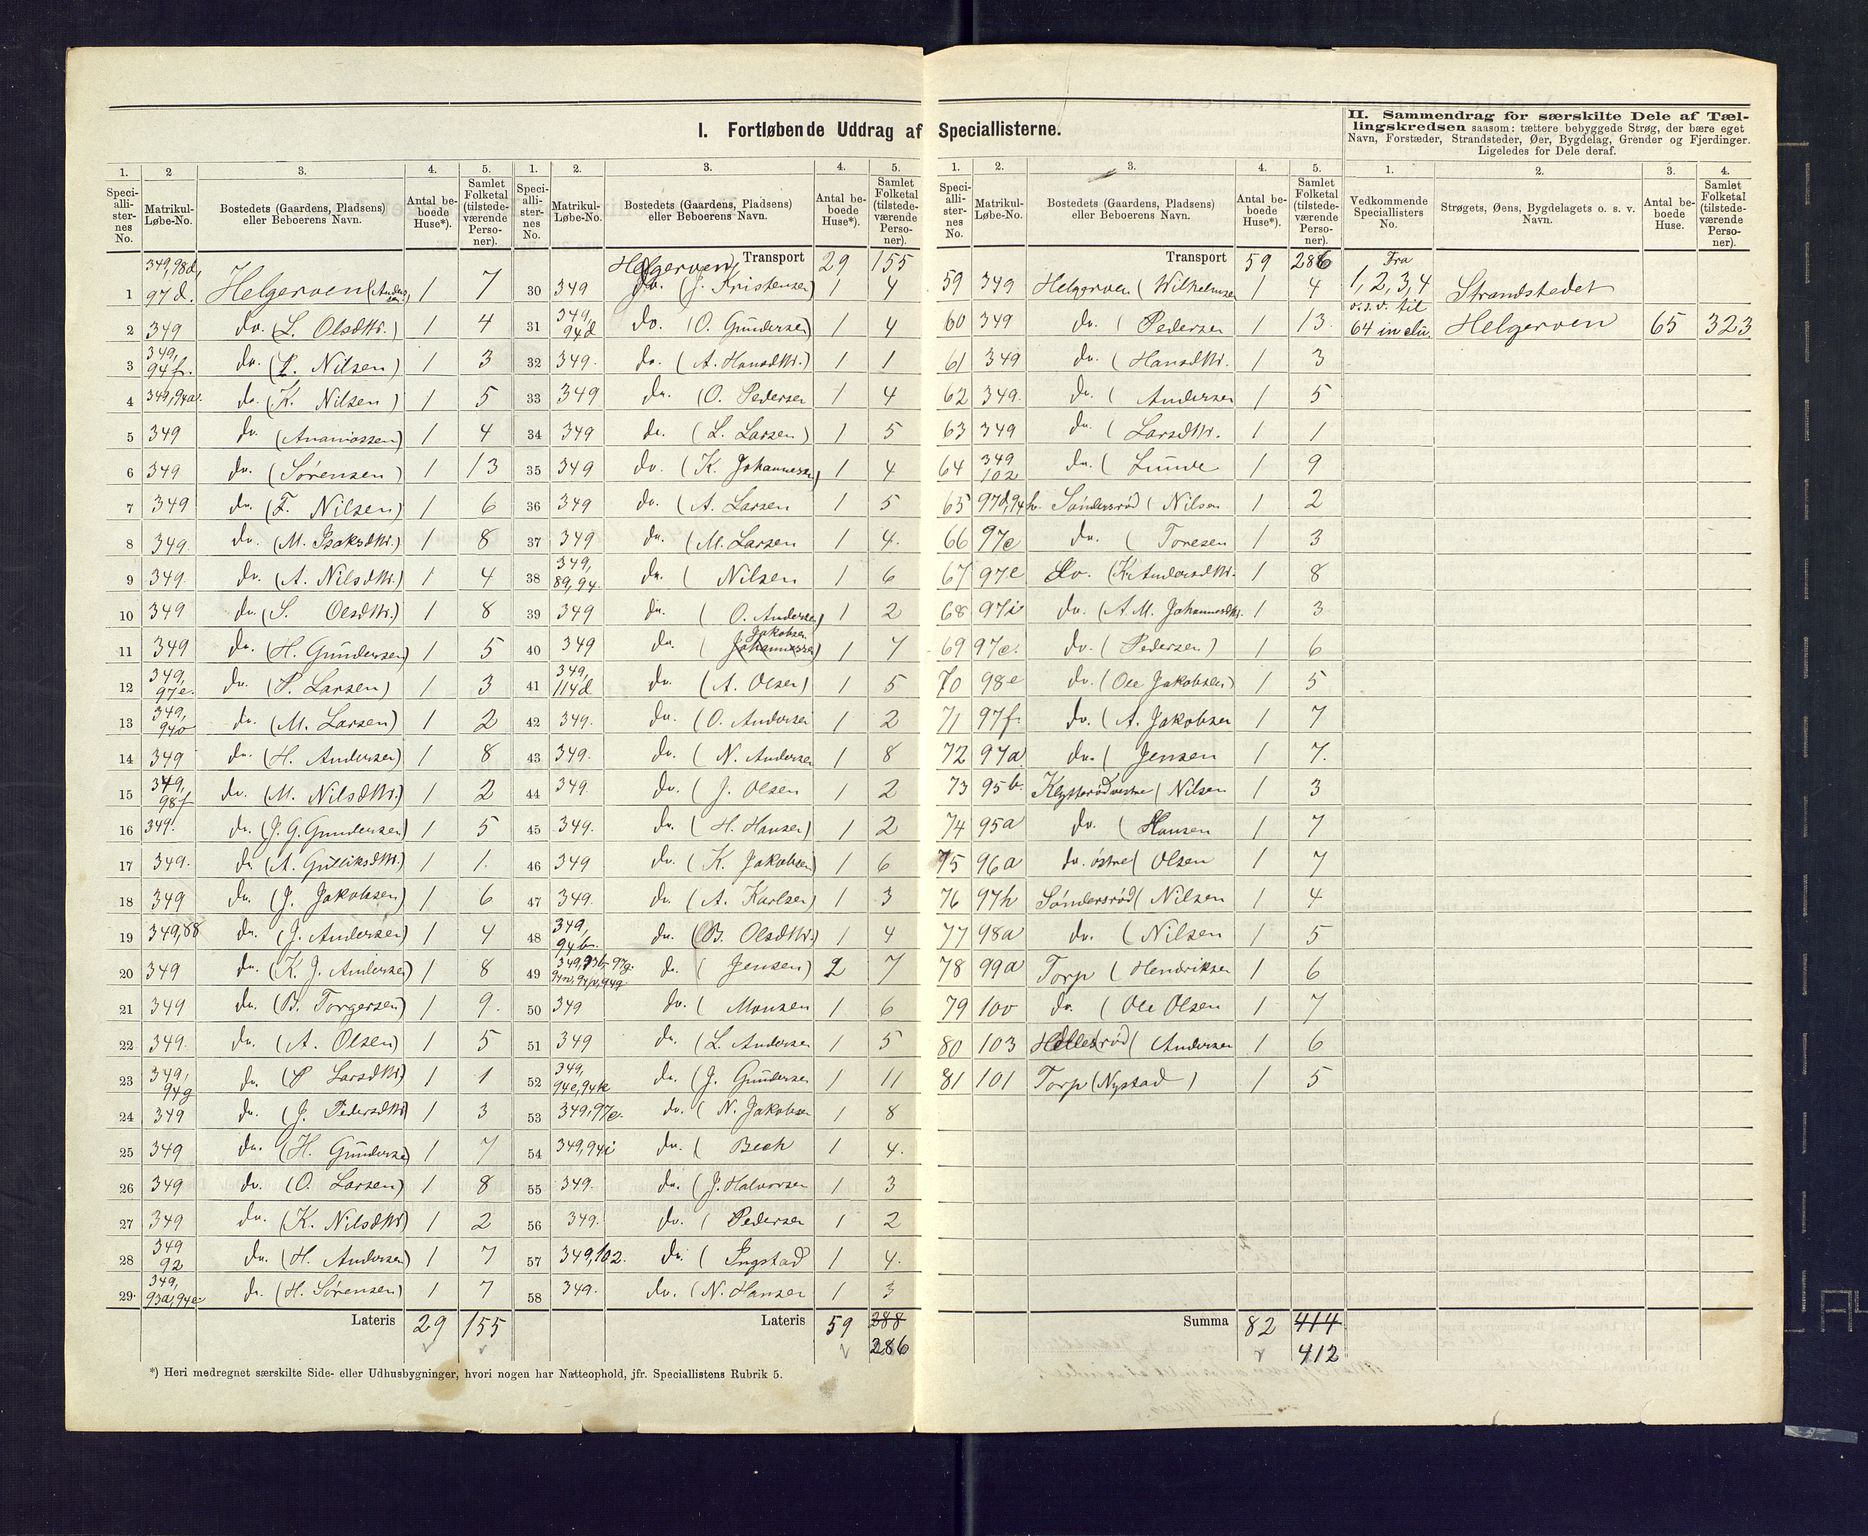 I. Fortløbende Uddrag af Speciallisterne.
II. Sammendrag for særskilte Dele af Tæl-
lingskredsen saasom: tættere bebyggede Strøg, der bære eget
Navn, Forstæder, Strandsteder, Øer, Bygdelag, Grender og Fjerdinger.
Ligeledes for Dele deraf.
1. 2 3. 4. 5.
Speciallisternes No. Matrikul-Løbe-No. Bostedets (Gaardens, Pladsens) eller Beboerens Navn. Antal beboede Huse*). Samlet Folketal (tilstedeværende Personer).
1 349,98d, 97d. Helgeroen (Anderssen) 1 7
2 349 do. (L. Olsdtr.) 1 4
3 349, 94f. do. (L. Nilsen) 1 3
4 349,94a. do. (K. Nilsen) 1 5
5 349 do. (Ananiassen) 1 4
6 349 do. (Sørensen) 1 13
7 349 do. (F. Nilsen) 1 6
8 349. do. (M. Isaksdtr.) 1 8
9 349. do. (A. Nilsdtr.) 1 4
10 349 do. (S. Olsdtr.) 1 8
11 349 do. (H. Gundersen) 1 5
12 349, 97e. do. (P. Larsen) 1 3
13 349, 94o do. (M. Larsen) 1 2
14 349 do. (H. Andersen) 1 8
15 349, 98f do. (M. Nilsdtr.) 1 2
16 349. do. (J. G. Gundersen) 1 5
17 349. do (A. Gulliksdtr.) 1 1.
18 349 do. (J. Jakobsen) 1 6
19 349,88 do. (J. Andersen) 1 4
20 349 do. (K. J. Andersen) 1 8
21 349 do. (B. Torgersen) 1 9.
22 349. do. (A. Olsen) 1 5
23 349, 94g do. (P Larsdtr) 1 1
24 349 do. (J. Pedersdtr) 1 3
25 349 do. (H. Gundersen) 1 7
26 349 do. (O. Larsen) 1 8
27 349 do. (K. Nilsdtr) 1 2
28 349 92 do. (H. Andersen) 1 7
29. 349, 93a,94e do. (H. Sørensen) 1 7
Lateris 29 155
1. 2. 3. 4. 5.
Speciallisternes No. Matrikul-Løbe-No. Bostedets (Gaardens, Pladsens) eller Beboerens Navn. Antal beboede Huse*). Samlet Folketal (tilstedeværende Personer).
Transport 29 155
30 349 Helgeroen do. (J. Kristensen) 1 4
31 349, 94d do. (O. Gundersen) 1 4
32 349. do. (A. Hansdtr.) 1 1
33 349 do. (O. Pedersen 1 4
34 349 do. (L. Larsen) 1 5
35 349 do. (K. Johannessen) 1 4
36 349 do. (A. Larsen 1 5
37 349 do. (M. Larsen 1 4.
38 349, 89,94. do. ( Nilsen 1 6
39 349 do. ( O. Andersen) 1 2
40 349 do. ( Johannessen Jakobsen) 1 7
41 349, 114d do. (A. Olsen) 1 5
42 349. do. (O. Andersen 1 2
43 349. do. (N. Andersen 1 8
44 349. do. (J. Olsen 1 2
45 349. do. (H. Hansen) 1 2
46 349 do. (K. Jakobsen) 1 6
47 349. do. (A. Karlsen) 1 3
48 349, 94b. do. (B. Olsdtr.) 1 4
49 349,93b,97g. do. (Jensen) 2 7
50 349 do. ( Monsen 1 6
51 349 do. (L. Andersen 1 5
52 349, 94c,94k do. (J. Gundersen 1 11
53 349,97c. do. (N. Jakobsen 1 8
54 349,94i do. ( Bech 1 4.
55 349. do. (J. Halvorsen 1 3
56 349. do. ( Pedersen 1 2
57 349,102. do. ( Ingstad 1 4.
58 349. do. (N. Hansen 1 3
Lateris 59 288
286
1. 2. 3. 4. 5.
Speciallisternes No. Matrikul-Løbe-No. Bostedets (Gaardens, Pladsens) eller Beboerens Navn. Antal beboede Huse*). Samlet Folketal (tilstedeværende Personer).
Transport 59 286
59 349 Helgeroen (Wilhelmsen 1 4
60 349 do. ( Pedersen 1 13.
61 349 do. (Hansdtr. 1 3
62 349. do. ( Andersen 1 5
63 349 do. ( Larsdtr. 1 1
64 349 102 do. ( Lunde 1 9
65 97d,94h. Søndersrød ( Nilsen 1 2
66 97c do. ( Toresen 1 3
67 97e do. (K. Andersdtr. 1 8
68 97i do. (A. M. Johannesdtr. 1 3
69 97c. do. (Pedersen) 1 6
70 98e do. (Ole Jakobsen) 1 5
71 97f. do. (A. Jakobsen 1 7
72 97a do. ( Jensen 1 7.
73 95b. Klytterød vestre ( Nilsen 1 3
74 95a do. ( Hansen 1 7
75 96a do. østre ( Olsen 1 7
76 97h Søndersrød ( Nilsen 1 4
77 98a do. (Nilsen 1 5
78 99a Torp ( Hendriksen 1 6
79 100 do. (Ole Olsen 1 7
80 103 Hellesrød ( Andersen 1 6
81 101 Torp (Nystad ) 1 5
Summa 82 414
412
1. 2. 3. 4.
Vedkommende Speciallisters No. Strøgets, Øens, Bygdelagets o. s. v. Navn. Antal beboede Huse. Samlet Folketal (tilstedeværende Personer).
Fra
1, 2, 3, 4 Strandstedet
o.s.v. til
64 inclu. Helgeroen 65 323
*) Heri medregnet særskilte Side- eller Udhusbygninger, hvori nogen har Natteophold, jfr. Speciallistens Rubrik 5.